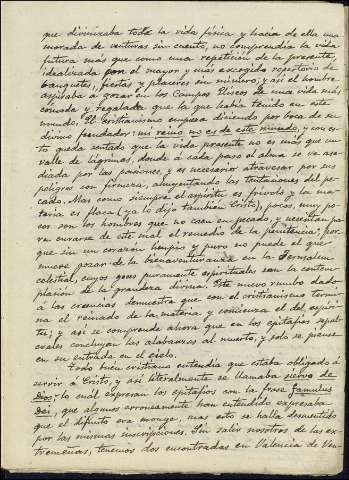 que divinizaba toda la vida física y hacía de ella una
morada de venturas sin cuento, no comprendía la vida
futura más que como una repetición de la presente,
idealizada con el mayor y más escogido repertorio de
banquetes, fiestas y placeres sin número; y así el hombre
aspiraba a gozar en los Campos Elíseos de una vida más
cómoda y regalada que la que había tenido en este
mundo. El cristianismo empieza diciendo por boca de su
divino fundador: mi reino no es de este mundo, y con es-
to queda sentado que la vida presente no es más que un
valle de lágrimas, donde á cada paso el alma se ve ase-
diada por las pasiones, y es necesario atravesar por sus
peligros con firmeza, ahuyentando las tentaciones del pe-
cado. Mas como siempre el espíritu es frívolo y la ma-
teria es flaca (ya lo dijo también Cristo), pocos, muy po-
cos son los hombres que no caen en pecado, y necesitan pa-
ra curarse de este mal el remedio de la penitencia, por-
que sin un corazón limpio y puro no puede el que
muere gozar de la bienaventuranza en la Jerusalen
celestial, cuyos goces puramente espirituales son la contem-
plación de la grandeza divina. Este nuevo rumbo dado
á las creencias demuestra que con el cristianismo termi-
na el reinado de la materia y comienza el del espíri-
tu; y así se comprende ahora que en los epitafios sepul-
crales concluyan las alabanzas al muerto, y solo se piense
en su entrada en el cielo.
Todo buen cristiano entendía que estaba obligado á
servir á Cristo, y así literalmente se llamaba siervo de
Dios, lo cual expresan los epitafios con la frase famulus
Dei, que algunos erroneamente han entendido expresaba
que el difunto era monge, mas esto se halla desmentido
por las mismas inscripciones. Sin salir nosotros de las ex-
tremeñas, tenemos dos encontradas en Valencia de Ven-